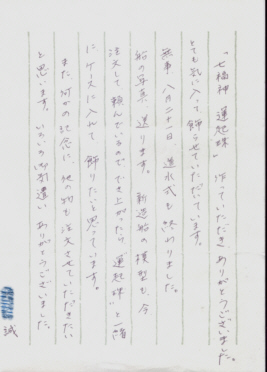 「七福神 運起珠」作っていただき、ありがとうございました。
とても気に入って飾らせていただいています。
無事、八月二十一日、進水式も終わりました。
船の写真、送ります。新造船の模型も、今
注文して頼んでいるので でき上がったら "運起珠" と一緒
に ケースに入れて 飾りたいと思っています。
また、何かの記念に、他の物も注文させていただきたい
と思います。いろいろ お引き ありがとうございました。
誠